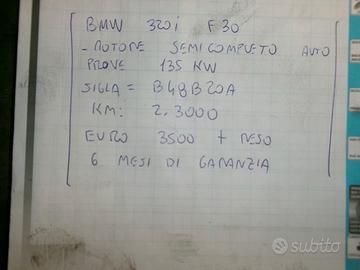 BMW 320i F30
- MOTORE SEMICOMPLETO AUTO
PROVE 135 KW
SIGLA = B48B20A
KM: 2.3000
EURO 3500 + RESO
6 MESI DI GARANZIA
subito